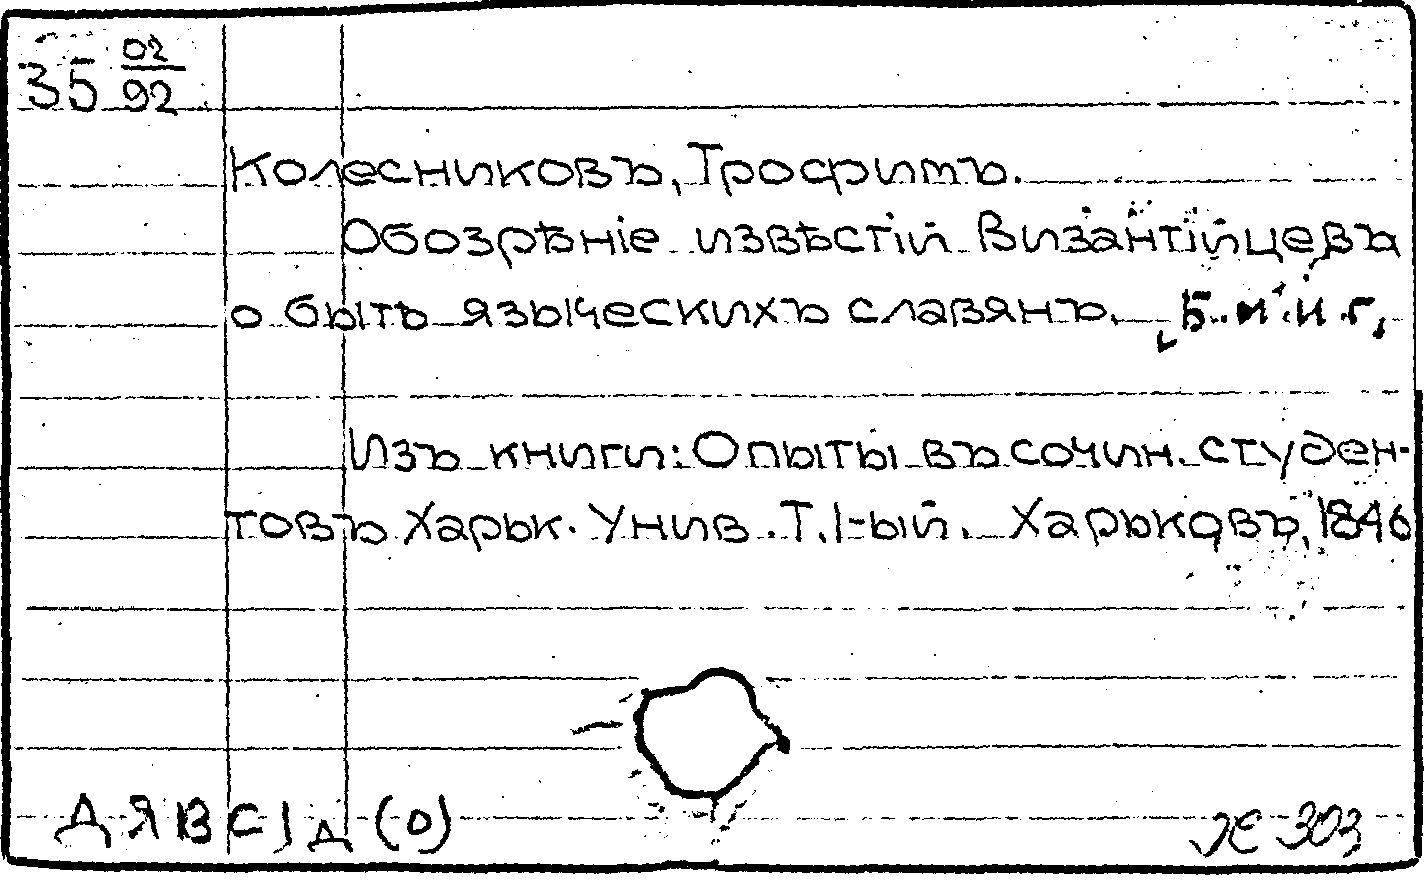 35 02/92
Колесниковъ, Трофимъ.
Обозрѣніе извѣстій Византійцевъ
о бытѣ языческихъ славянъ. Б. м. и г.
Изъ книги: Опыты въ сочин. студен-
товъ Харьк. Унив. Т. I-ый. Харьковъ, 1846